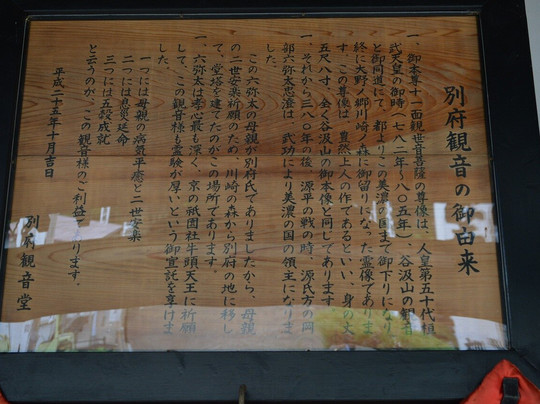 別府観音の御由来
一、御本尊十一面観世音菩薩の尊像は、人皇第五十代桓
武天皇の御時(七八二年~八〇五年)、谷汲山の観音
と御同道にて、都よりこの美濃の国まで御下りになり、
終に大野ノ郷川崎ノ森に御留りになった霊像でありま
す。この尊像は、豊然上人の作であるといい、身の丈
五尺八寸、全く谷汲山の御本像と同じであります
一、それから三八〇年の後、源平の戦の時、源氏方の岡
部六弥太忠澄は、武功により美濃の国の領主になりま
した。
この六弥太の母親が別府氏でありましたから、母親
の二世安楽祈願のため、川崎の森から別府の地に移し
て、堂塔を建てたのがこの場所であります。
一、六弥太は孝心最も深く、京の祇園社牛頭天王に祈願
して、この観音様も霊験が厚いという御宣託を享けま
した。
一つには母親の病気平癒と二世安楽
二つには息災延命
三つには五穀成就
と云うのが、この観音様のご利益であります。
平成二十五年十月吉日
別府観音堂